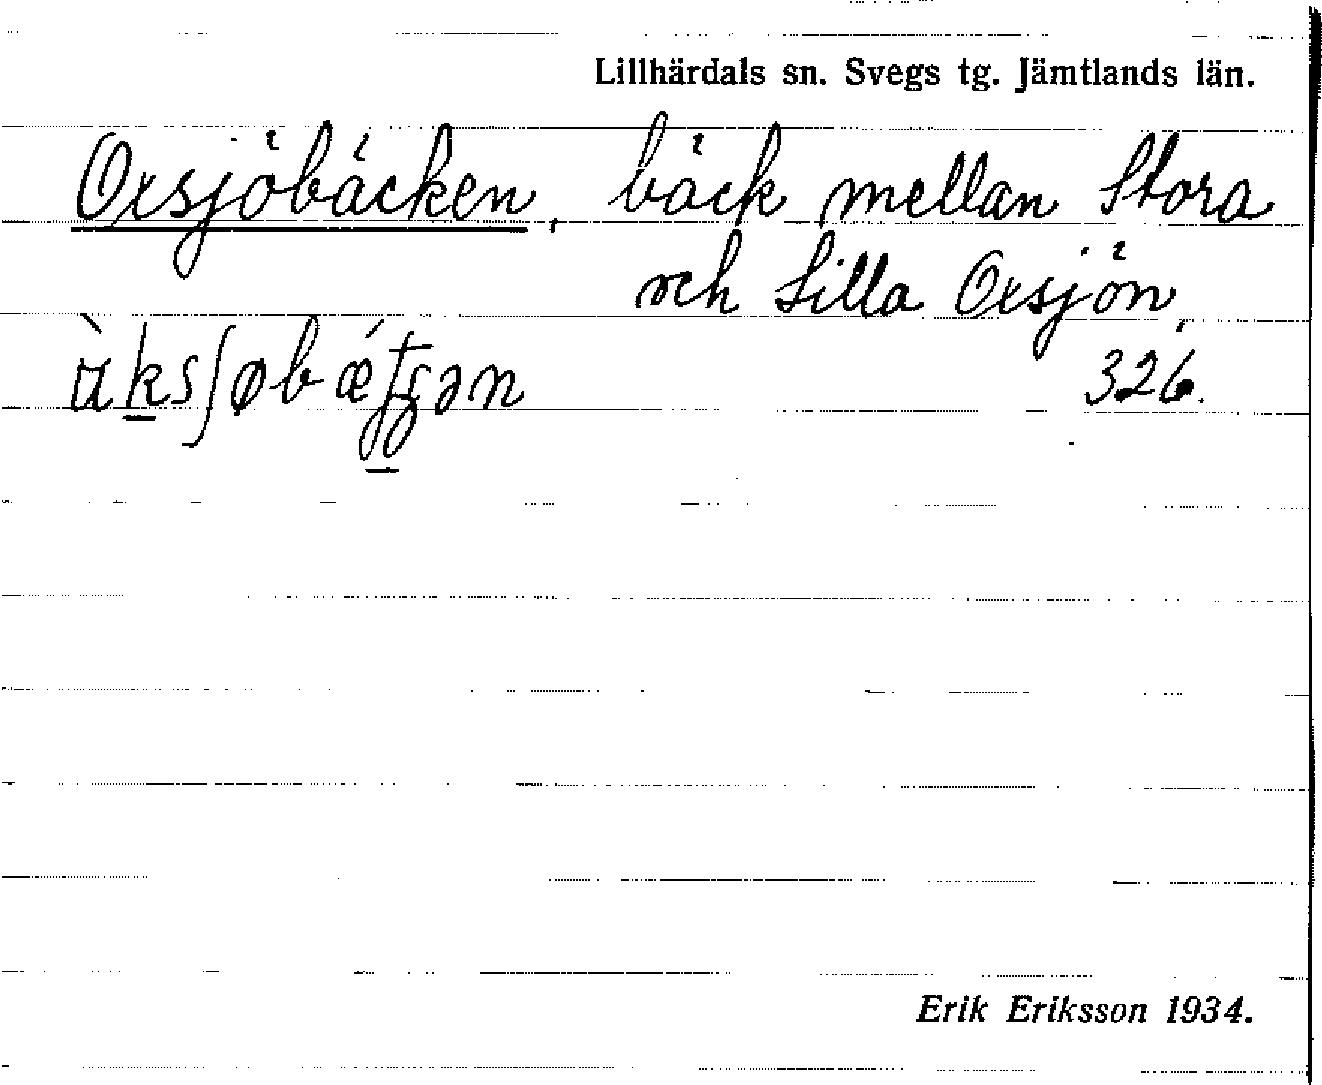 Lillhärdals sn. Svegs tg. Jämtlands län.
Oxsjöbäcken, bäck mellan Stora
och Lilla Oxsjön,
326.
Erik Eriksson 1934.